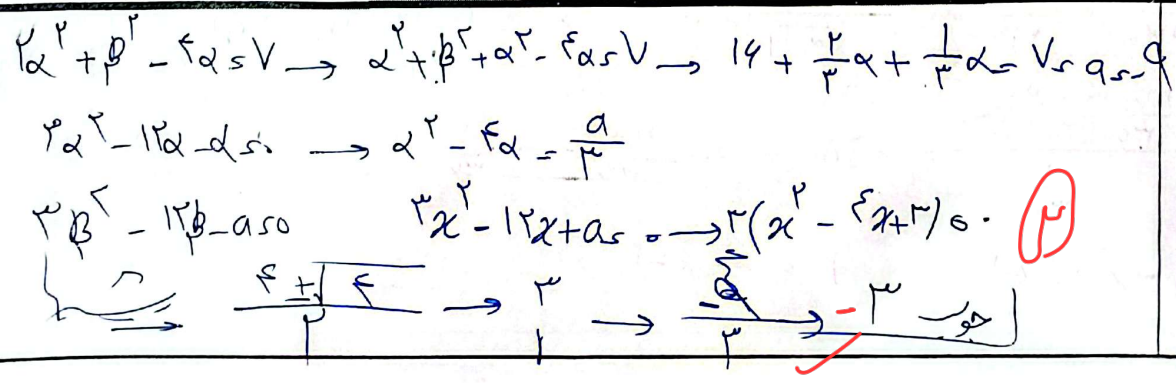 ۲α^۲ + β^۲ - ۴α = ۷ → α^۲ + β^۲ + α^۲ - ۴α = ۷ → ۱۶ + ۲/۳ a + ۱/۳ a = ۷ = a = -۹
۳α^۲ - ۱۲α - a = ۰ → α^۲ - ۴α = a/۳
۳β^۲ - ۱۲β - a = ۰ ۳x^۲ - ۱۲x + a = ۰ → ۳(x^۲ - ۴x + ۳) = ۰ ۳
۴ ± √۴ / ۲ → ۳ ۱ → /۳ → -۳ جواب